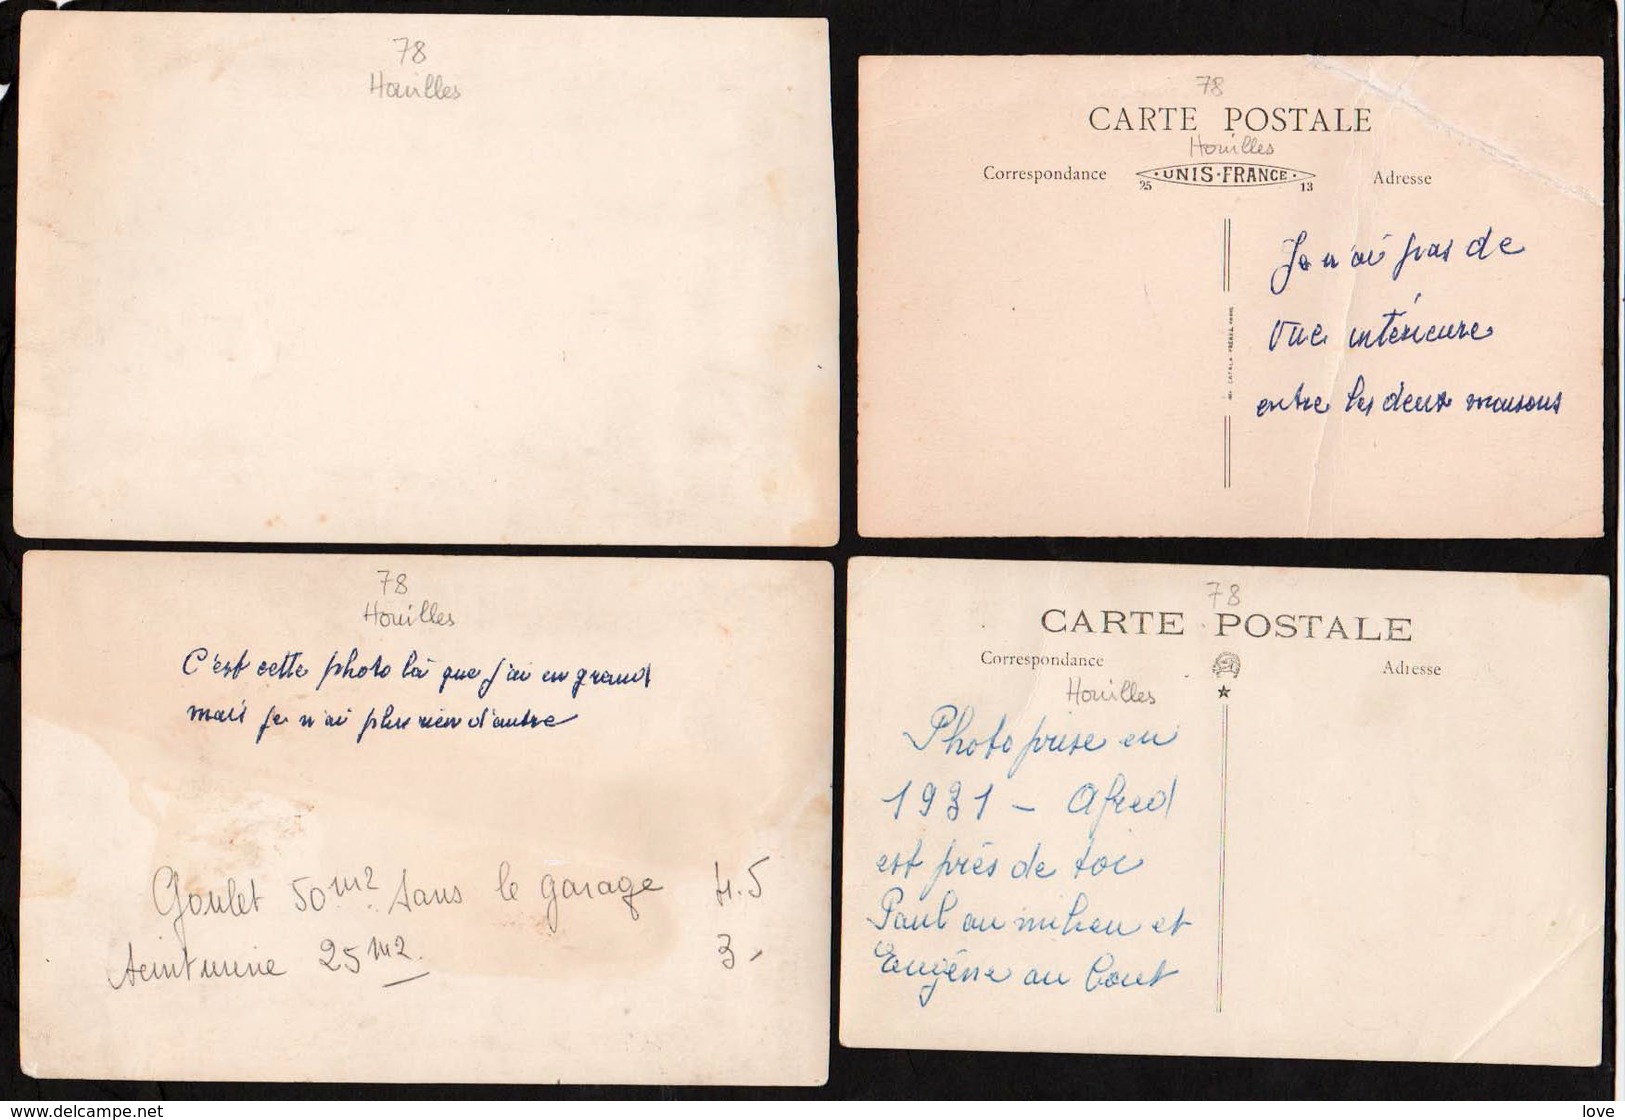 78
Houilles
78
CARTE POSTALE
Houilles
Correspondance
UNIS·FRANCE
25
13
Adresse
Je n'ai pas de
vue intérieure
entre les deux maisons
CATALA FRÈRES, PARIS
78
Houilles
C'est cette photo là que j'ai en grand
mais je n'ai plus rien d'autre
Goulet 50 m2 dans le garage 4.5
teinturerie 25 m2. 3 -
78
CARTE POSTALE
Correspondance
Adresse
Houilles
Photo prise en
1931 - Afred
est près de toi
Paul au milieu et
Eugène au bout
www.delcampe.net
love